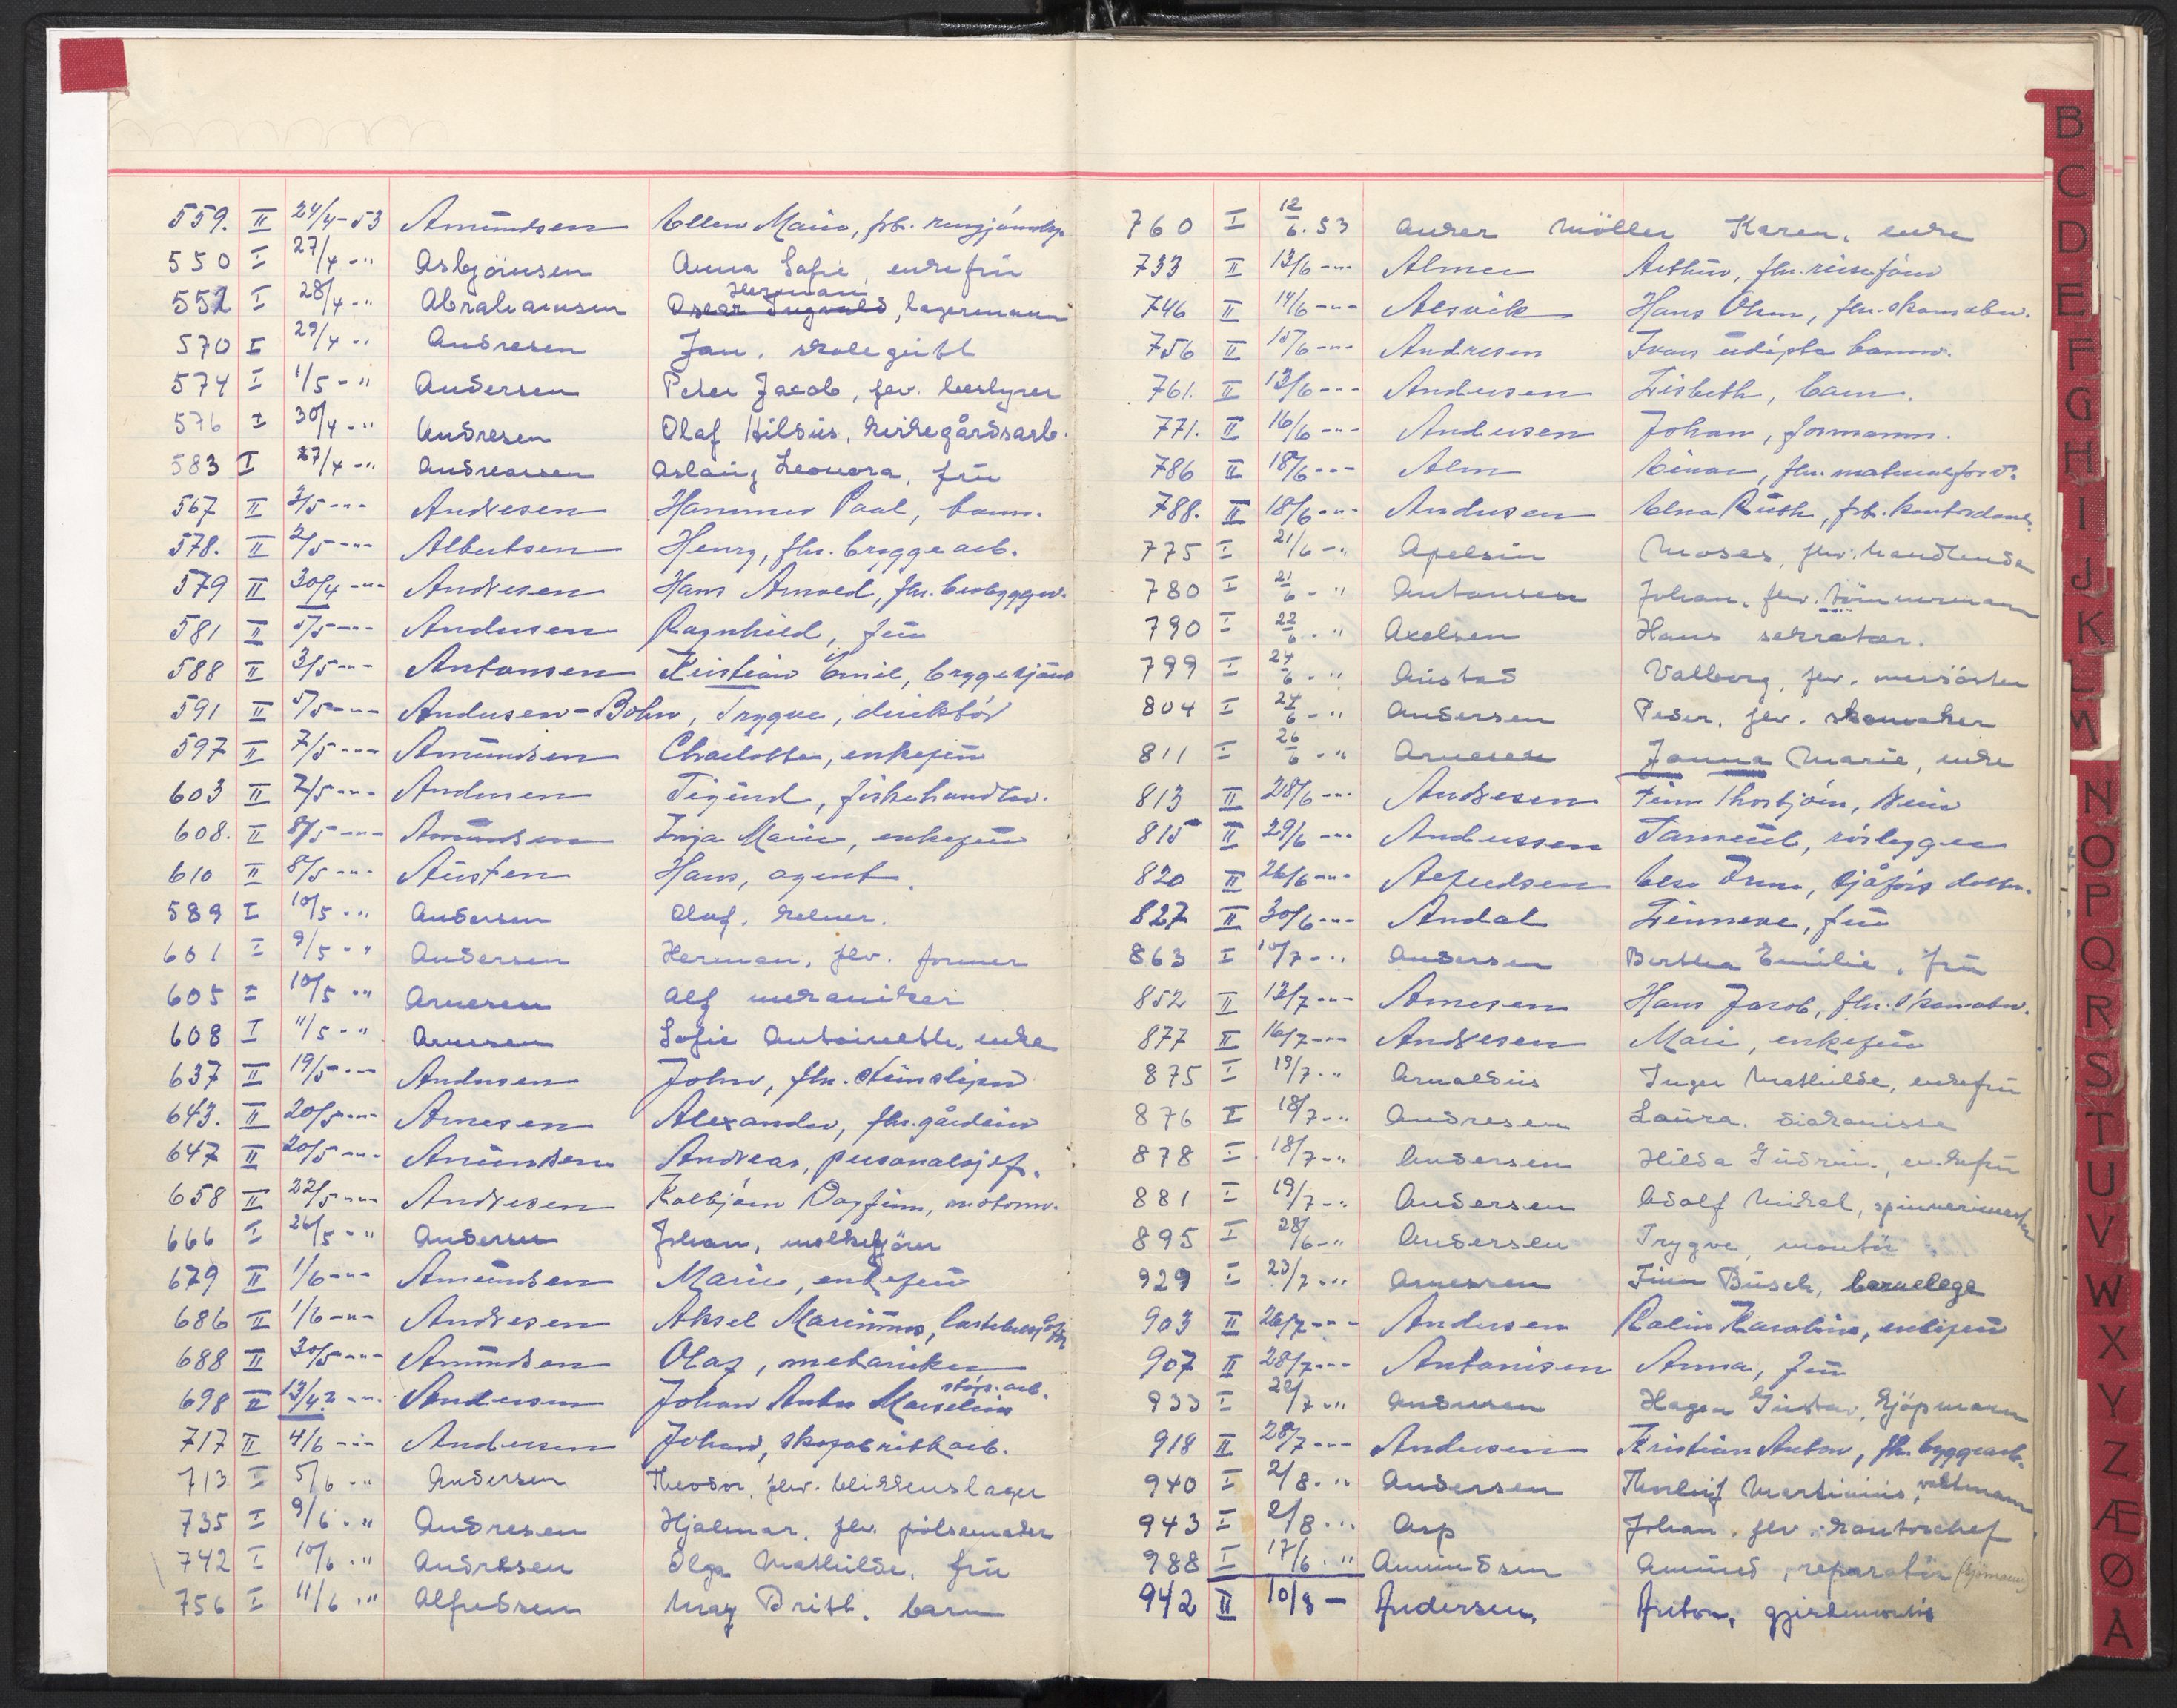 559. II 24/4-53 Amundsen Ellen Marie, frk.
550 I 27/4 -" Asbjörnsen Anna Sofie, enkefrü
Herman
552 I 28/4 -" Abrahamsen Oscar Ingvald, lagermann
570 I 29/4 -" Andresen Jan. skolegütt
574 I 1/5 -" Andersen Peter Jacob, fhv. bestyrer
576 I 30/4 -" Andresen Olaf Hildüs, kirkegårdsarb.
583 I 27/4 -" Andreassen Aslaüg Leonora, frü
567 II 3/5 -"- Andresen Hammer Paal, barn.
578. II 2/5 -"- Albertsen Henry, fhv. bryggearb.
579 II 30/4 -"- Andresen Hans Arnold, fhv.
581 II 5/5 -"- Andersen Ragnhild, frü
588 II 3/5 -"- Antonsen Kristian Emil, bryggesjauer
591 II 5/5 -"- Andersen-Bohn, Trygve, direktör
597 II 7/5 -"- Amündsen Charlotte, enkefrü
603 II 7/5 -"- Andersen Sigürd, fiskehandler.
608. II 8/5 -"- Amündsen Inga Marie, enkefrü
610 II 8/5 -"- Aüsten Hans, agent.
589 I 10/5 -" Andersen Oluf. kelner.
601 I 9/5 -" Andersen Herman, fhv. former
605 I 10/5 -" Arnesen Alf mekaniker
608 I 11/5 -" Arnesen Sofie Antoinette, enke
637 II 19/5 -"- Andersen John, fhv. steinsliper
643. II 20/5 -"- Arnesen Alexander, fhv. gårdeier
647 II 20/5 -"- Amündsen Andreas, personalsjef.
658 II 22/5 -"- Andresen Kolbjörn Dagfinn, motorm.
666 I 26/5 -" Andersen Johan, melkekjörer
679 II 1/6 -"- Amündsen Marie, enkefrü
686 II 1/6 -"- Andresen Aksel Marinüs, lastebilsjåför
688 II 30/5 -"- Amündsen Olaf, mekaniker
støp. arb.
698 II 13/4? -"- Andersen Johan Anton Marselius
717 II 4/6 -"- Andersen Johan, skofabrikkarb.
713 I 5/6 -" Andersen Theodor, fhv. blikkenslager
735 I 9/6 -" Andresen Hjalmar, fhv. pölsemaker
742 I 10/6 -" Andresen Olga Mathilde, frü
756 I 11/6 -" Alfredsen May Britt. barn
760 I 12/6. 53 Anker Möller Karen, enke
733 II 13/6 -"- Almer Arthür, fhv.
746 II 14/6 -"- Alsvik Hans Olum, fhv. skomaker.
756 II 15/6 -"- Andresen Ivars üdöpte barn.
761. II 13/6 -"- Andersen Lisbeth, barn.
771. II 16/6 -"- Andersen Johan, formann.
786 II 18/6 -"- Alm Einar, fhv. materialforv.
788. II 18/6 -"- Andersen Elna Rüth, frk. kontordame.
775 I 21/6 -" Apelsin Moses, fhv. handlende
780 I 21/6 -" Antonsen Johan, fhv. tömmermann
790 I 22/6 -" Axelsen Hans sekretær.
799 I 24/6 -" Aüstad Valborg, fhv. mersöster
804 I 24/6 -" Andersen Peder, fhv. skomaker
811 I 26/6 -" Arnesen Janna Marie, enke
813 II 28/6 -"- Andresen Finn Thorbjörn,
815 II 29/6 -"- Anderssen rörlegger
820 II 26/6 -"- Else Irene, sjåförs datter.
827 II 30/6 -"- Andal Linneve, frü
863 I 10/7 -" Andersen Bertha Emilie, frü
852 II 13/7 -"- Arnesen Hans Jacob, fhv. skomaker.
877 II 16/7 -"- Andresen Mari, enkefrü
875 I 19/7 -" Arnaldüs Inger Mathilde, enkefrü
876 I 18/7 -" Andresen Laüra. diakonisse
878 I 18/7 -" Andersen Hilda Güdrün, enkefrü
881 I 19/7 -" Andersen Adolf Mikal, spinnerimester
895 I 28/6 -" Andersen Trygve, montör
929 I 23/7 -" Arnessen Finn Büsch, barnelege
903 II 26/7 -"- Andersen Karoline, enkefrü
907 II 28/7 -"- Antonisen Anna, frü
933 I 29/7 -" Andersen Hagen Güstav, kjöpmann
918 II 28/7 -"- Andersen Kristian Anton, fhv. byggearb.
940 I 2/8 -" Andersen Thorleif Martinius, valtmann
943 I 2/8 -" Asp Johan, fhv. kontorchef
988 I 17/6 -" Amundsen Amünd, reparatör (sjömann)
942 II 10/8 - Andersen, Anton, gjerdemontör
B
C
D
E
F
G
H
I
J
K
L
M
N
O
P
Q
R
S
T
U
V
W
X
Y
Z
Æ
Ø
Å